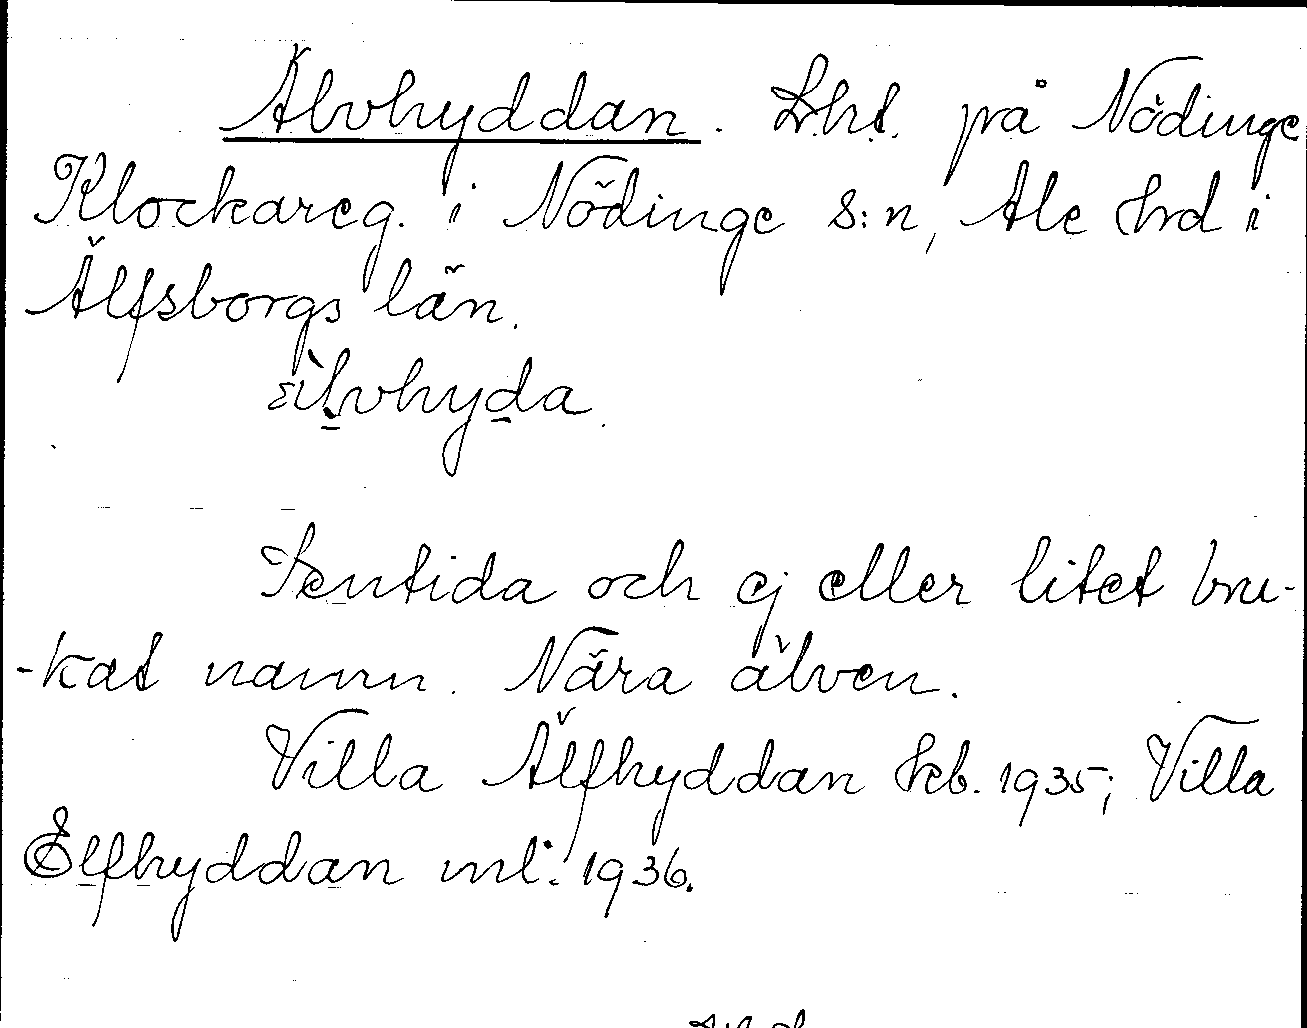 Älvhyddan. Lht. på Nödinge
Klockareg. i Nödinge s:n, Ale hrd i
Älfsborgs län.
älvhyda
Sentida och ej eller litet bru-
-kat namn. Nära älven.
Villa Älfhyddan teb. 1935; Villa
Elfhyddan ml: 1936.